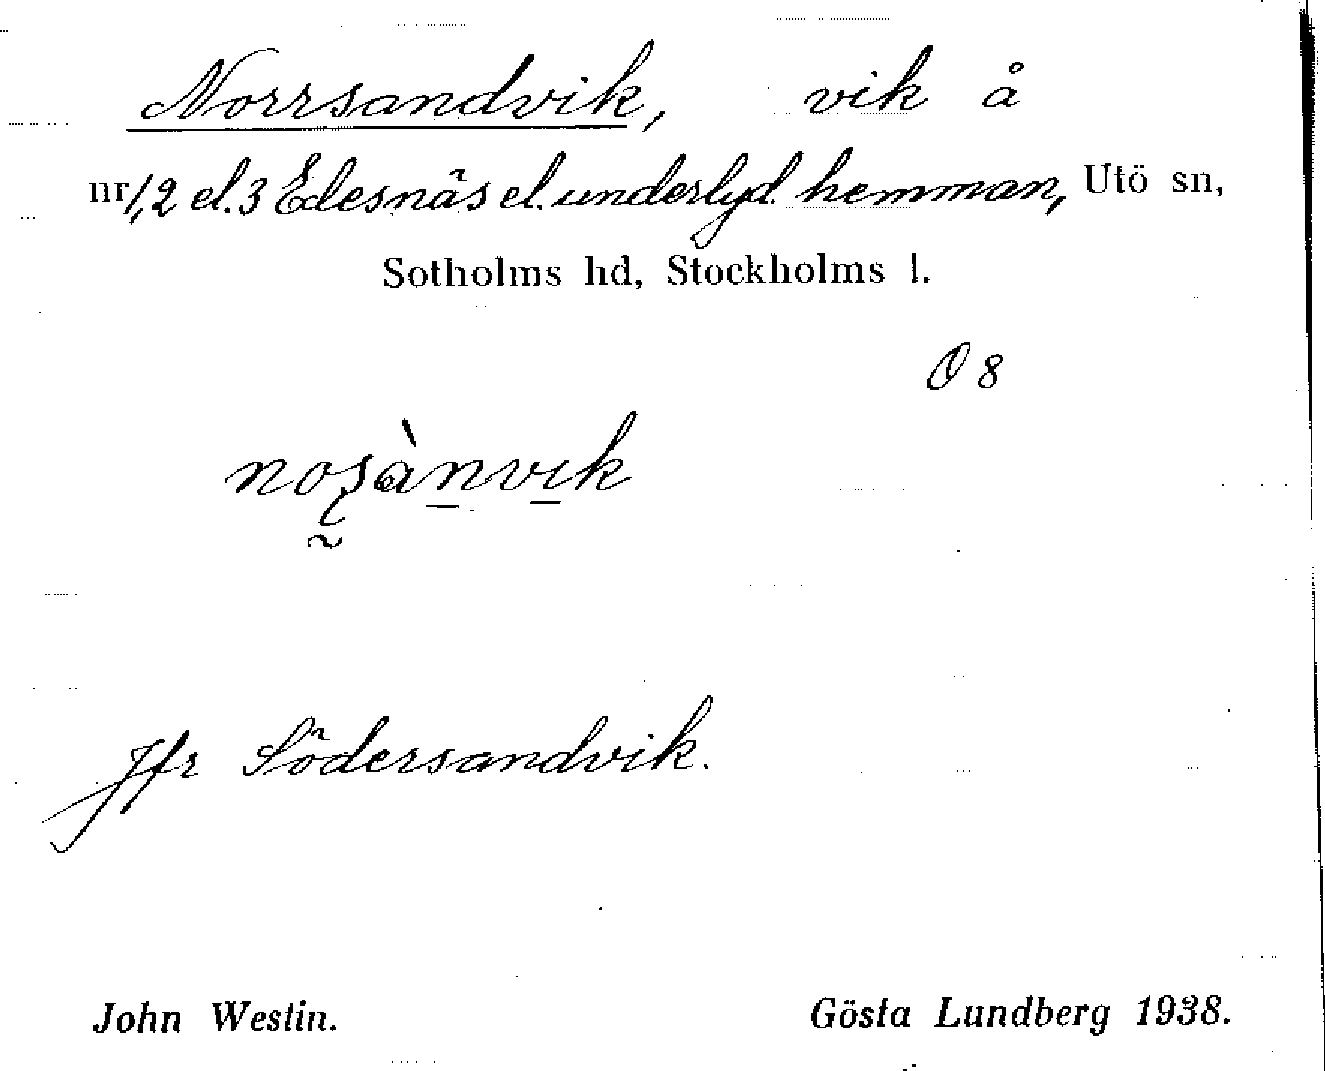 Norrsandvik, vik å
nr 1, 2 el. 3 Edesnäs el. underlyd. hemman, Utö sn,
Sotholms hd, Stockholms l.
O 8
Jfr Södersandvik.
John Westin. Gösta Lundberg 1938.